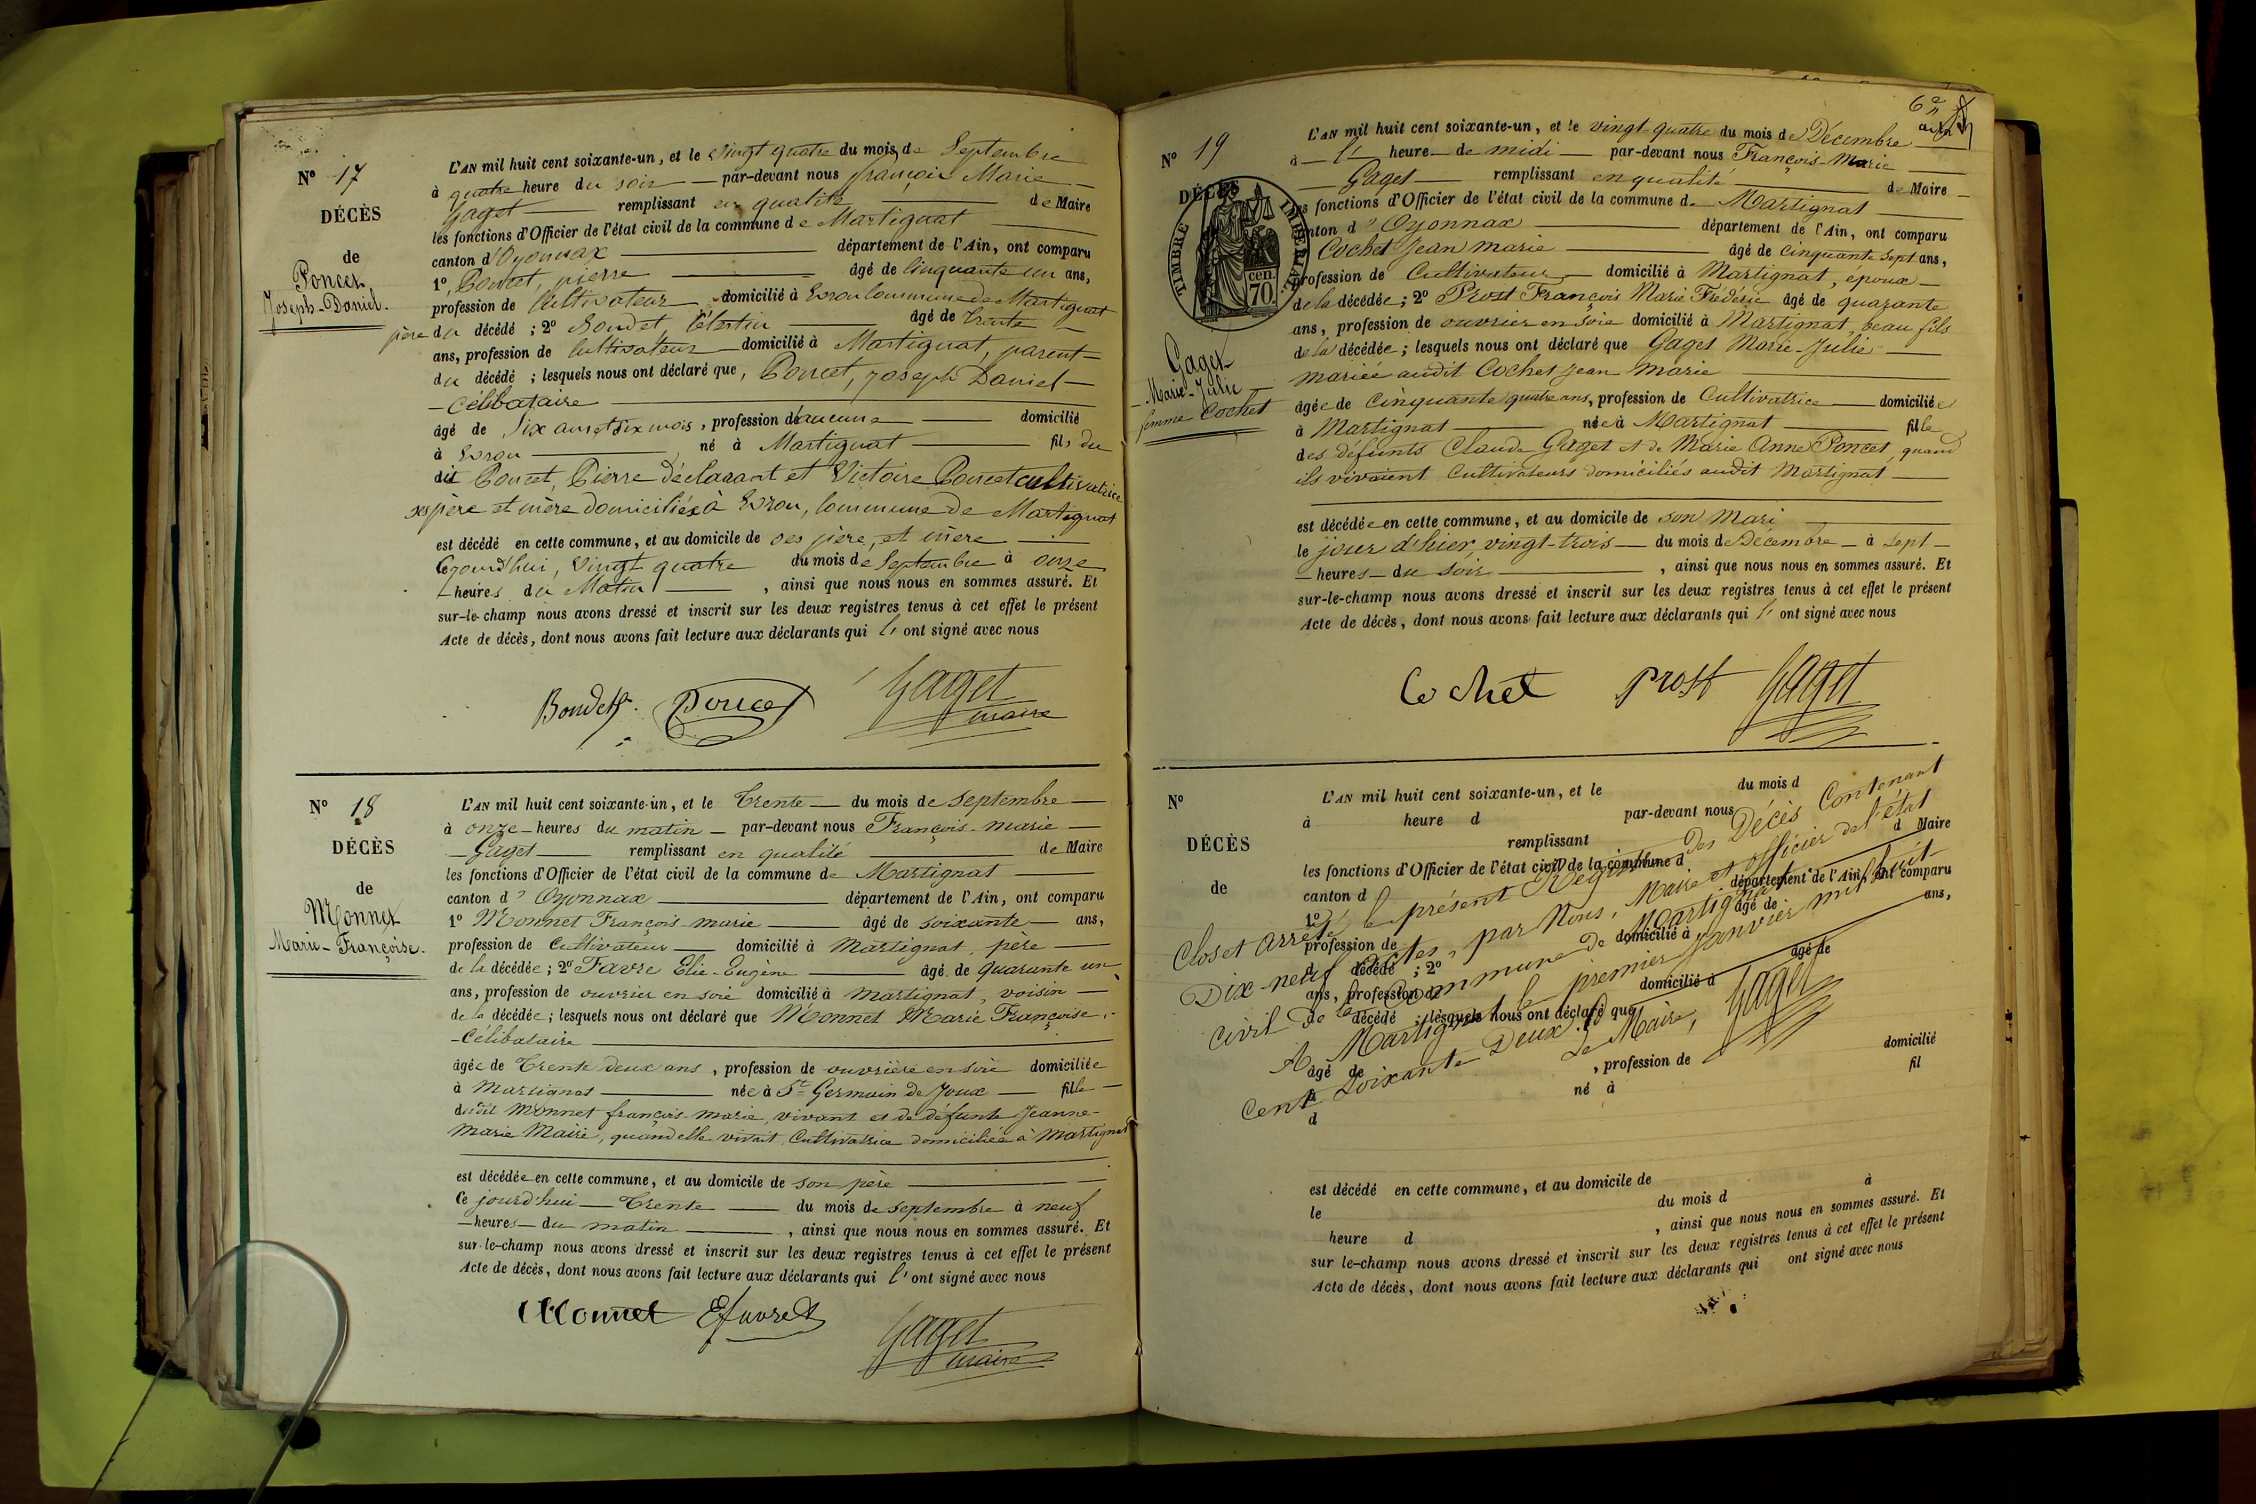 N° 17
DÉCÈS
de
Poncet
Joseph-Daniel.
L'AN mil huit cent soixante-un, et le vingt quatre du mois de Septembre
à quatre heure du soir par-devant nous françois Marie
Gaget remplissant en qualité de Maire
les fonctions d'Officier de l'état civil de la commune de Martignat
canton d'Oyonnax département de l'Ain, ont comparu
1°, Poncet, pierre âgé de Cinquante un ans,
profession de Cultivateur domicilié à Evron Commune de Martignat
père du décédé ; 2° Célestin âgé de trente
ans, profession de Cultivateur domicilié à Martignat, parent
du décédé ; lesquels nous ont déclaré que, Poncet, joseph Daniel
Célibataire
âgé de Six ans et Six mois, profession d'aucune domicilié
à Evron né à Martignat fils du
dit Poncet, Pierre déclarant et Victoire Poncet cultivatrice
ses père et mère domiciliés à Evron, Commune de Martignat
est décédé en cette commune, et au domicile de ses père, et mère
Cejourd'hui, Vingt quatre du mois de Septembre à onze
heures du Matin , ainsi que nous nous en sommes assuré. Et
sur-le-champ nous avons dressé et inscrit sur les deux registres tenus à cet effet le présent
Acte de décès, dont nous avons fait lecture aux déclarants qui l' ont signé avec nous
Poncet Gaget
maire
N° 18
DÉCÈS
de
Monnet
Marie-Françoise.
L'AN mil huit cent soixante-un, et le Trente du mois de Septembre
à onze heures du matin par-devant nous François-marie
Gaget remplissant en qualité de Maire
les fonctions d'Officier de l'état civil de la commune de Martignat
canton d'Oyonnax département de l'Ain, ont comparu
1° Monnet François-marie âgé de soixante ans,
profession de Cultivateur domicilié à Martignat, père
de la décédée ; 2° Favre Elie-Eugène âgé de quarante un
ans, profession de ouvrier en soie domicilié à Martignat, voisin
de la décédée ; lesquels nous ont déclaré que Monnet Marie Françoise,
Célibataire
âgée de Trente deux ans, profession de ouvrière en soie domiciliée
à Martignat née à St Germain de Joux fille
dudit Monnet françois-marie, vivant et de défunte Jeanne-
Marie Maire, quand elle vivait Cultivatrice domiciliée à Martignat
est décédée en cette commune, et au domicile de son père
Ce jourd'hui Trente du mois de septembre à neuf
heures du matin , ainsi que nous nous en sommes assuré. Et
sur-le-champ nous avons dressé et inscrit sur les deux registres tenus à cet effet le présent
Acte de décès, dont nous avons fait lecture aux déclarants qui l' ont signé avec nous
Monnet Gaget
maire
N° 19
DÉCÈS
TIMBRE IMPÉRIAL
cen.
70.
Gaget
Marie-Julie
femme Cochet
L'AN mil huit cent soixante-un, et le vingt-quatre du mois de Décembre
à heure de midi par-devant nous François-Marie
Gaget remplissant en qualité de Maire
les fonctions d'Officier de l'état civil de la commune de Martignat
canton d'Oyonnax département de l'Ain, ont comparu
Cochet Jean marie âgé de cinquante sept ans,
profession de Cultivateur domicilié à Martignat, epoux
de la décédée ; 2° Prost François Marie Frédéric âgé de quarante
ans, profession de ouvrier en soie domicilié à Martignat, beau fils
de la décédée ; lesquels nous ont déclaré que Gaget Marie-Julie
mariée audit Cochet Jean Marie
âgée de Cinquante quatre ans, profession de Cultivatrice domiciliée
à Martignat née à Martignat fille
des défunts Claude Gaget et de Marie Anne Poncet, quand
ils vivaient Cultivateurs domiciliés audit Martignat
est décédée en cette commune, et au domicile de son Mari
le jour d'hier vingt-trois du mois de Décembre à sept
heures du soir , ainsi que nous nous en sommes assuré. Et
sur-le-champ nous avons dressé et inscrit sur les deux registres tenus à cet effet le présent
Acte de décès, dont nous avons fait lecture aux déclarants qui l' ont signé avec nous
Cochet Prost Gaget
N°
DÉCÈS
de
L'AN mil huit cent soixante-un, et le du mois d
à heure d par-devant nous
remplissant d Maire
les fonctions d'Officier de l'état civil de la commune d
canton d département de l'Ain, ont comparu
1° âgé de ans,
profession de domicilié à
d décédé ; 2° âgé de
ans, profession de domicilié à
d décédé ; lesquels nous ont déclaré que
âgé de , profession de domicilié
à né à fil
d
Clos et arrêté le présent Registre des Décès Contenant
Dix-neuf actes, par Nous, Maire et officier de l'état
civil de la Commune de Martignat.
A Martignat le premier Janvier mil huit
Cent Soixante Deux.
Le Maire, Gaget
est décédé en cette commune, et au domicile de
le du mois d à
heure d , ainsi que nous nous en sommes assuré. Et
sur-le-champ nous avons dressé et inscrit sur les deux registres tenus à cet effet le présent
Acte de décès, dont nous avons fait lecture aux déclarants qui ont signé avec nous